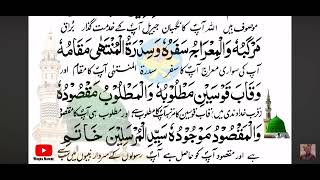 موصوف ہیں اللہ آپ کا نگہبان جبریل آپ کے خدمت گذار براق
مَرْكَبُهٗ وَالْمِعْرَاجُ سَفَرُهٗ وَسِدْرَةُ الْمُنْتَهٰى مَقَامُهٗ
آپ کی سواری معراج آپ کا سفر سدرۃ المنتہیٰ آپ کا مقام اور
وَقَابَ قَوْسَيْنِ مَطْلُوْبُهٗ وَالْمَطْلُوْبُ مَقْصُوْدُهٗ
قاب قوسین کا مرتبہ آپ کا مطلوب ہے اور مطلوب ہی آپ کا مقصود
وَالْمَقْصُوْدُ مَوْجُوْدُهٗ سَيِّدِ الْمُرْسَلِيْنَ خَاتَمِ
ہے اور مقصود آپ کو حاصل ہے آپ رسولوں کے سردار نبیوں میں سب